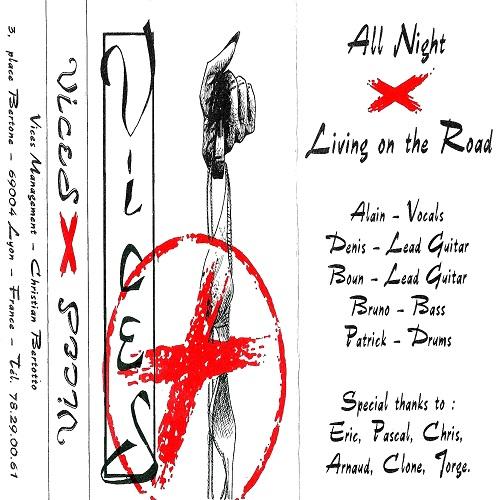 3, place Bertone - 69004 Lyon - France - Tél. 78.29.00.61
Vices Management - Christian Bertotto
Vices Vices
VICES
All Night
Living on the Road
Alain - Vocals
Denis - Lead Guitar
Boun - Lead Guitar
Bruno - Bass
Patrick - Drums
Special thanks to :
Eric, Pascal, Chris,
Arnaud, Clone, Jorge.